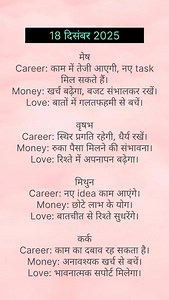 18 दिसंबर 2025
मेष
Career: काम में तेजी आएगी, नए task
मिल सकते हैं।
Money: खर्च बढ़ेगा, बजट संभालकर रखें।
Love: बातों में गलतफहमी से बचें।
वृषभ
Career: स्थिर प्रगति रहेगी, धैर्य रखें।
Money: रुका पैसा मिलने की संभावना।
Love: रिश्ते में अपनापन बढ़ेगा।
मिथुन
Career: नए idea काम आएंगे।
Money: छोटे लाभ के योग।
Love: बातचीत से रिश्ते सुधरेंगे।
कर्क
Career: काम का दबाव रह सकता है।
Money: अनावश्यक खर्च से बचें।
Love: भावनात्मक सपोर्ट मिलेगा।